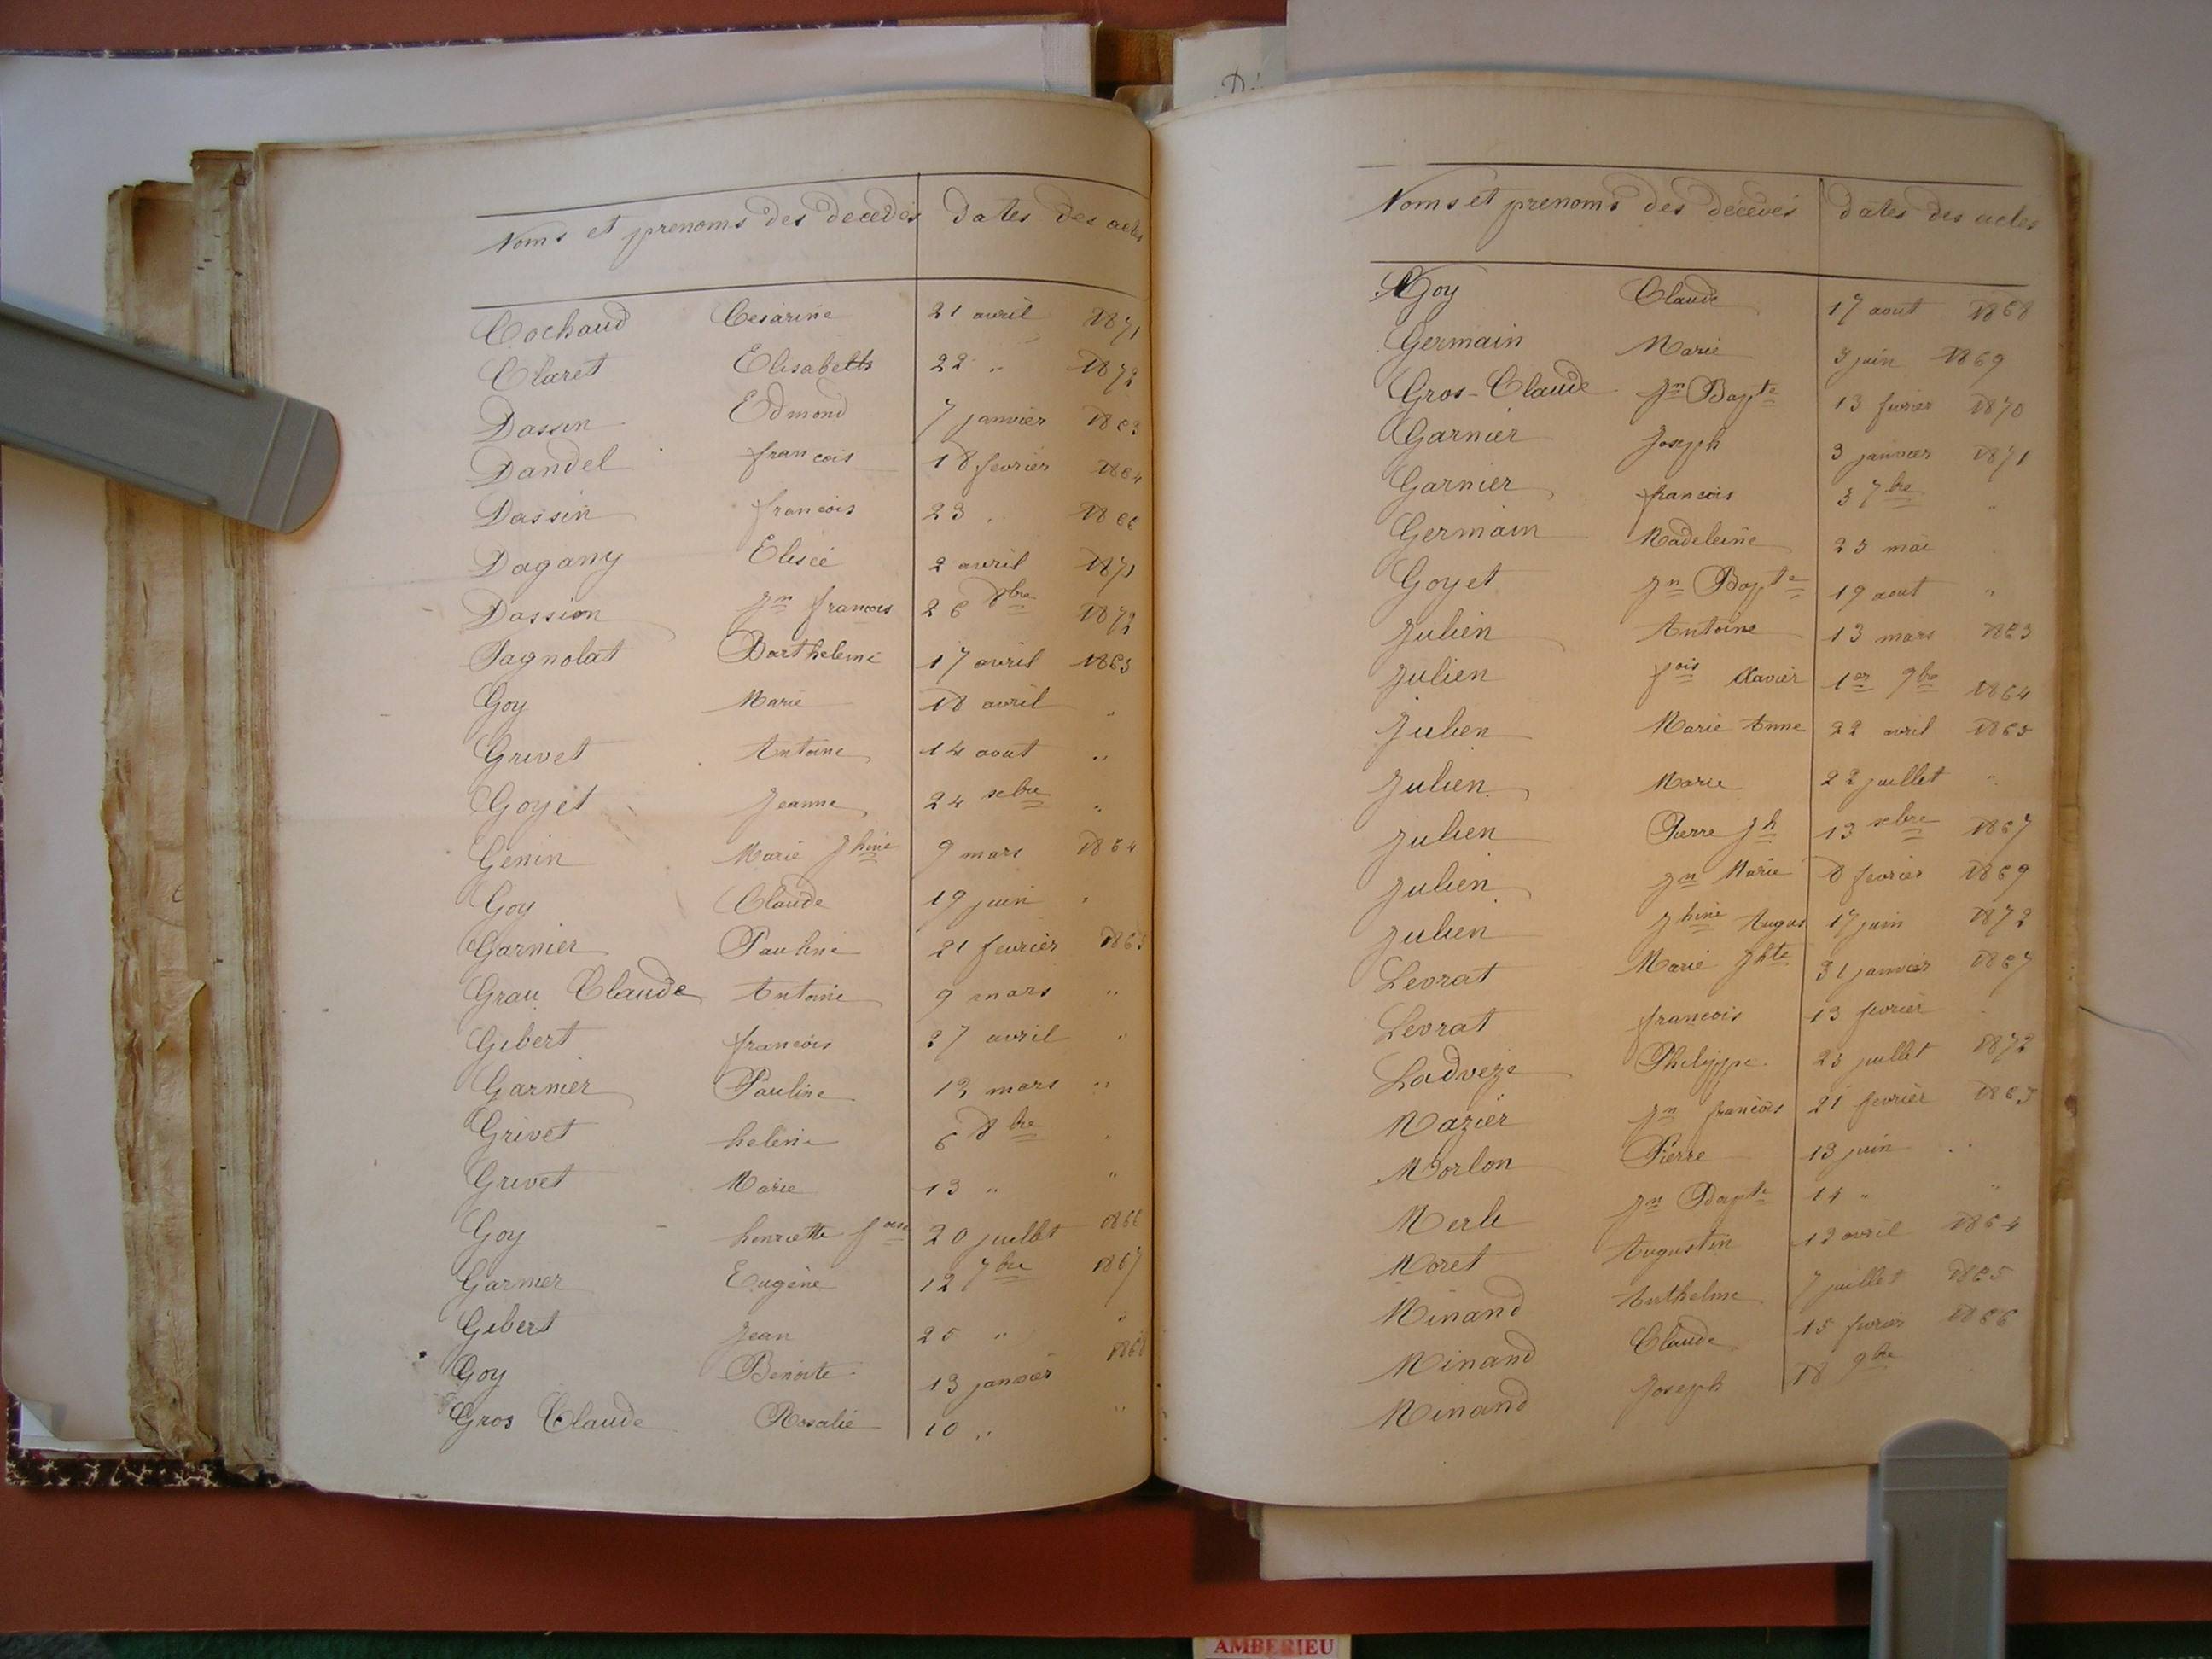 Noms et prenoms des decedés Dates des actes
Cochaud Cesarine 21 avril 1871
Claret Elisabeth 22 " 1872
Dassin Edmond 7 janvier 1863
Dandel francois 18 fevrier 1864
Dassin francois 23 " 1866
Dagany Elisée 2 avril 1871
Dassion Jn francois 26 8bre 1872
Fagnolat Barthelemi 17 avril 1863
Goy Marie 18 avril "
Grivet Antoine 14 aout "
Goyet Jeanne 24 xbre "
Genin Marie Jhine 9 mars 1864
Goy Claude 19 juin "
Garnier Pauline 21 fevrier 1865
Grau Claude Antoine 9 mars "
Gibert francois 27 avril "
Garnier Pauline 12 mars "
Grivet helene 6 8bre "
Grivet Marie 13 " "
Goy henriette foise 20 juillet 1866
Garnier Eugène 12 7bre 1867
Gibert Jean 25 " "
Goy Benoite 13 janvier 1868
Gros Claude Rosalie 10 " "
Noms et prenoms des décevés dates des actes
Goy Claude 17 aout 1868
Germain Marie 3 juin 1869
Gros-Claude Jn Bapte 13 fevrier 1870
Garnier Joseph 3 janvier 1871
Garnier francois 3 7bre "
Germain Madeleine 25 mai
Goyet Jn Bapte 19 aout "
Julien Antoine 13 mars 1863
Julien fois Xavier 1er 9bre 1864
Julien Marie Anne 22 avril 1865
Julien Marie 22 juillet "
Julien Pierre Jh 13 xbre 1867
Julien Jn Marie 8 fevrier 1869
Julien Jhine Augus 17 juin 1872
Levrat Marie Jhte 31 janvier 1867
Levrat francois 13 fevrier "
Ladveze Philippe 23 juillet 1872
Mazier Jn francois 21 fevrier 1863
Morlon Pierre 13 juin "
Merle Jn Bapte 14 " "
Moret Augustin 12 avril 1864
Minand Anthelme 7 juillet 1865
Minand Claude 15 fevrier 1866
Minand Joseph 18 9bre
AMBERIEU